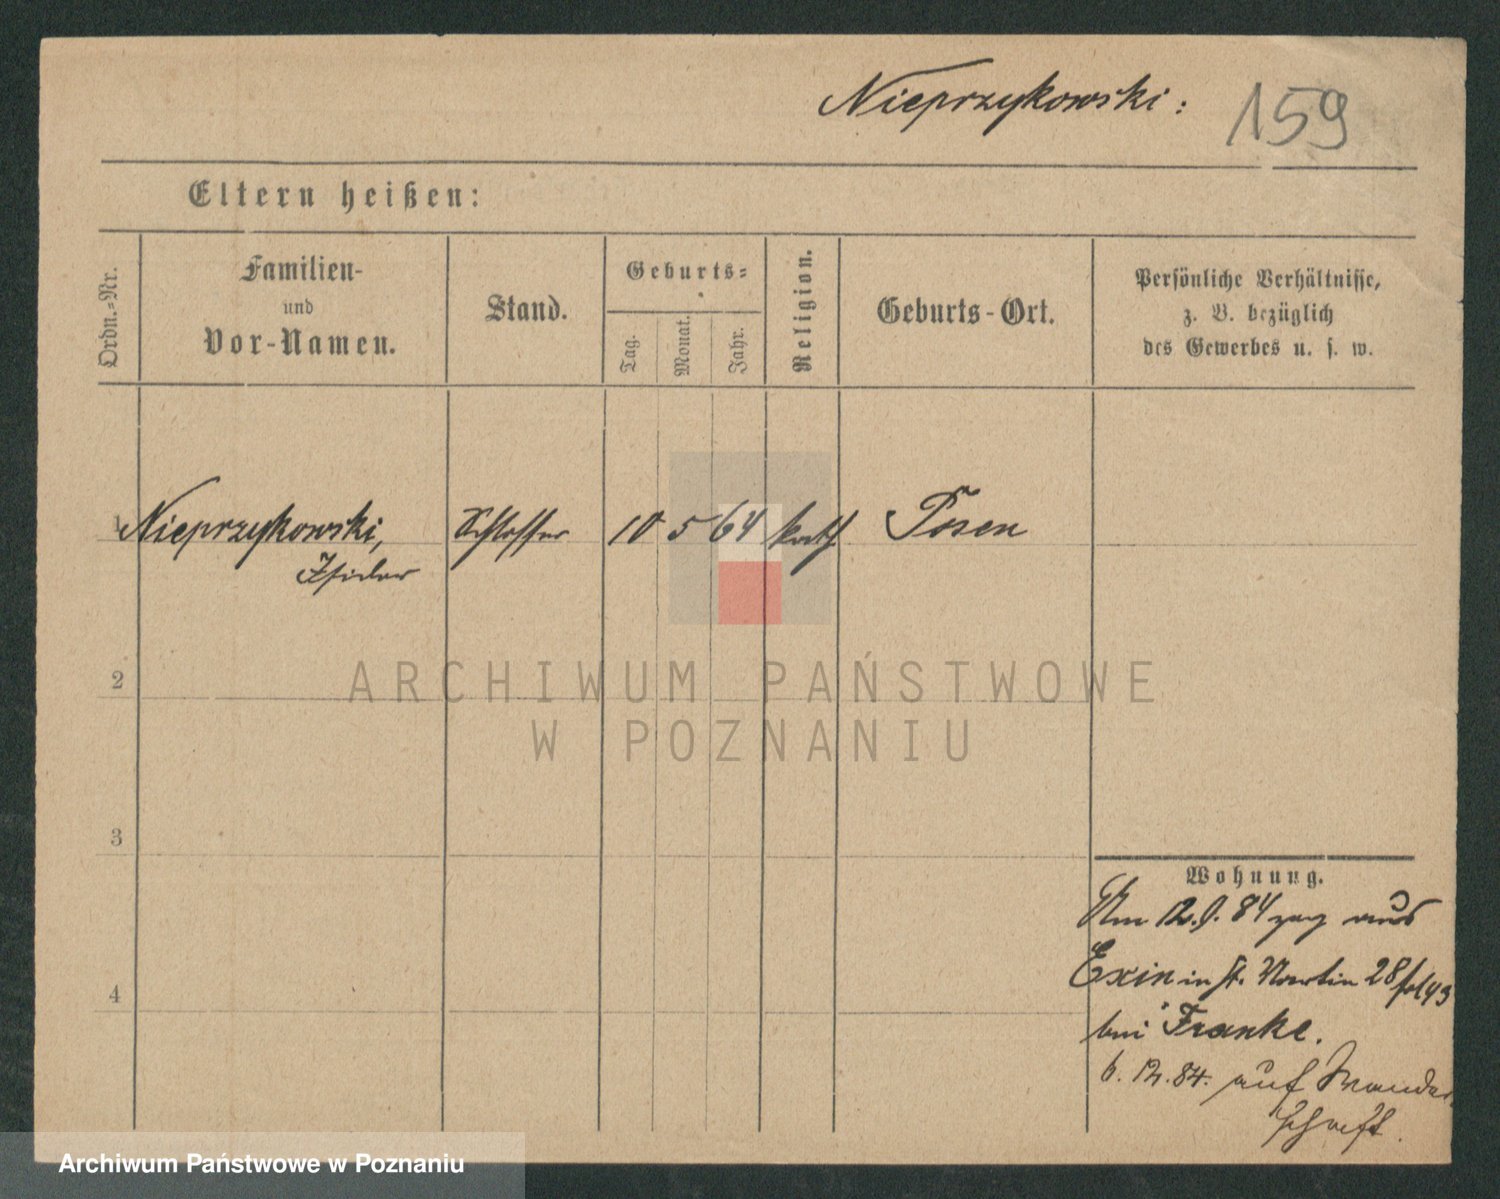 Nieprzykowski: 159
Eltern heißen:
Ordn.-Nr.
Familien-
und
Vor-Namen.
Stand.
Geburts-
Tag.
Monat.
Jahr.
Religion.
Geburts-Ort.
Persönliche Verhältnisse,
z. B. bezüglich
des Gewerbes u. s. w.
1 Nieprzykowski, Schlosser 10 5 64 kath. Posen
Isidor
2
3
4
ARCHIWUM PAŃSTWOWE
W POZNANIU
Wohnung.
Am 12.9. 84 zog aus
Exin in St. Martin 28
bei Franke.
6. 12. 84. auf Wander
schaft.
Archiwum Państwowe w Poznaniu